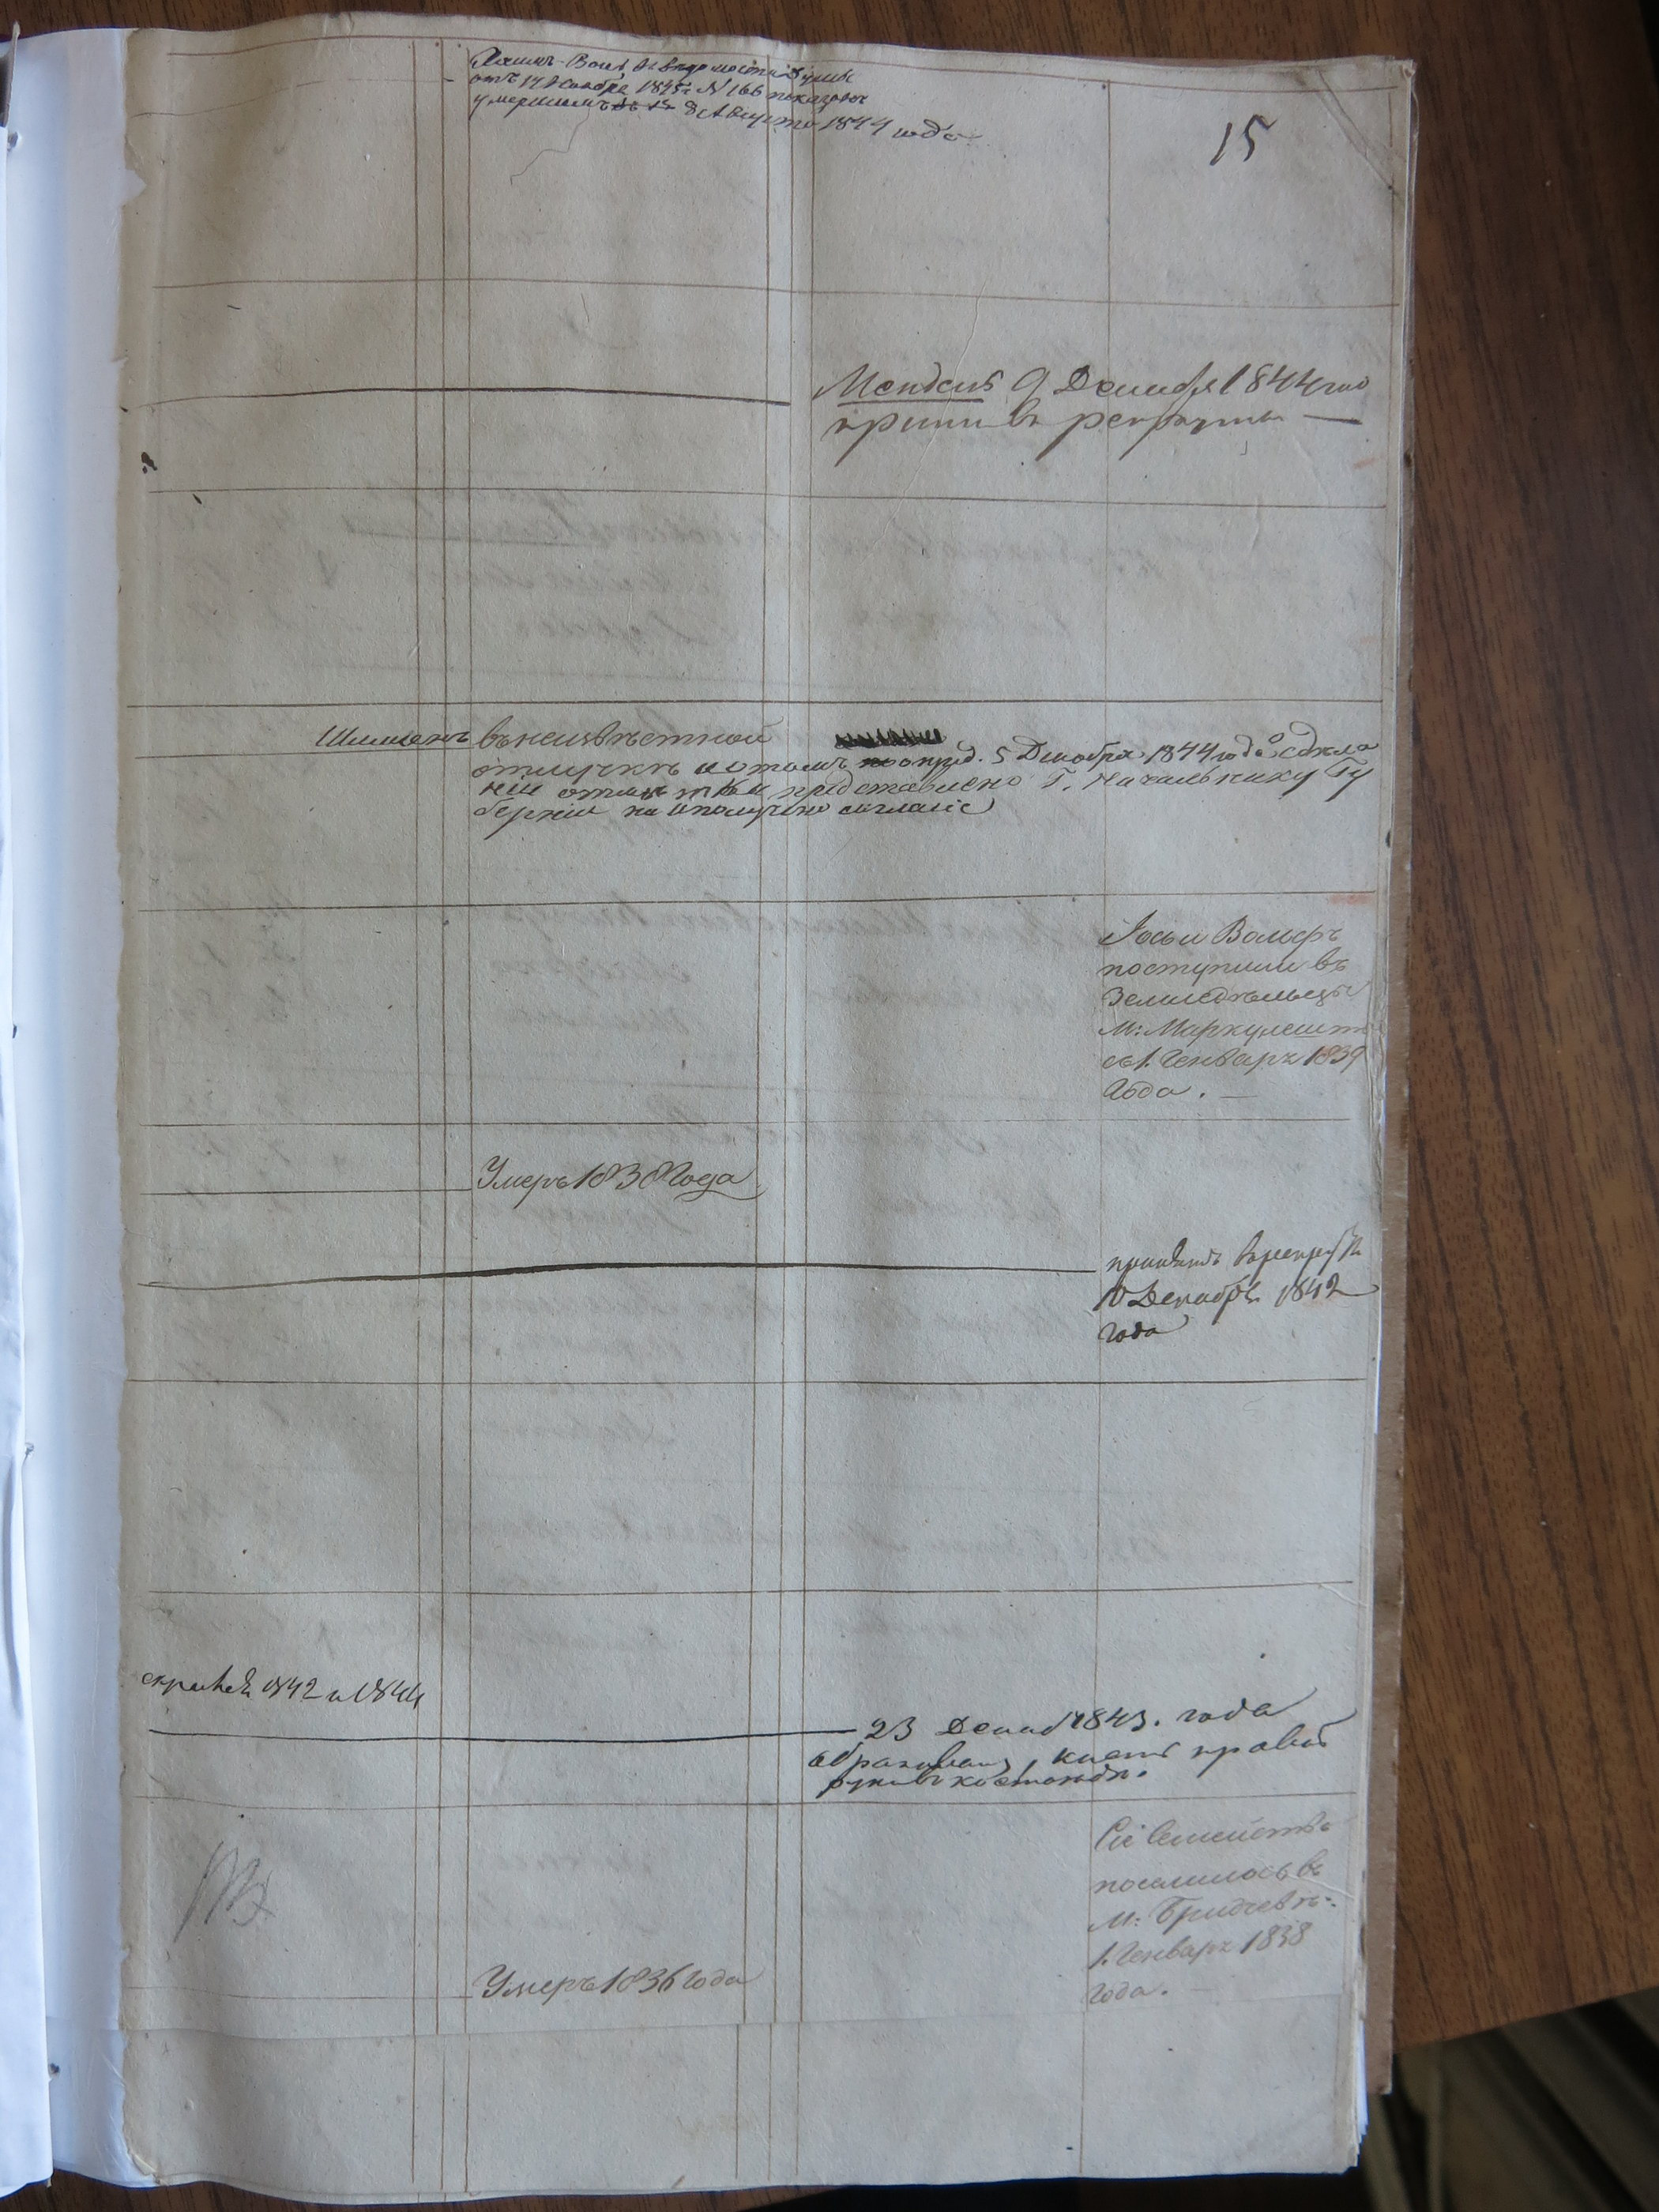 Хаимъ-Вольѳ въ ведомости думы
отъ 17 Ноабра 1845 г. N 166 показанъ
умершимъ 8 Августа 1844 года
15
Мендель 9 Декабря 1844 года
принятъ въ рекруты —
Шлиоменъ въ неизвѣстной
отлучкѣ и о томъ опред. 5 Декабря 1844 года
представлено Г. Начальнику Гу
берніи
Іось и Вольфъ
поступили въ
Земледѣльцы
М: Маркулешты
съ 1. Генваря 1839
Года. —
Умеръ 1838 Года
принятъ в рекруты
10 Декабря 1842
года
1842 и 1844
23 Декаб 1843. года
правой
руки
Сіе Семейство
поселилось въ
М: Бричевѣ
1. Генваря 1838
Года. —
Умеръ 1836 Года